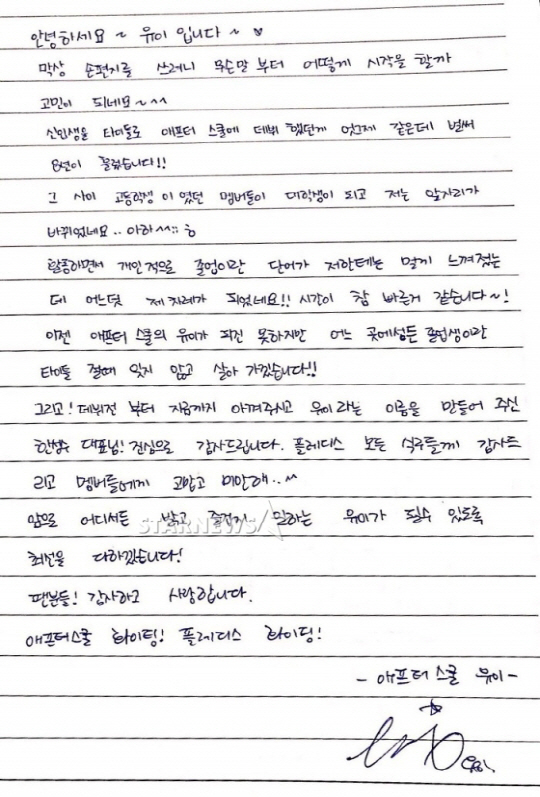 안녕하세요~ 유이 입니다~ ♥
막상 손편지를 쓰려니 무슨말 부터 어떻게 시작을 할까
고민이 되네요~^^
신입생을 타이틀로 애프터 스쿨에 데뷔 했던게 엊그제 같은데 벌써
8년이 흘렀습니다!!
그 사이 고등학생 이 였던 멤버들이 대학생이 되고 저는 앞자리가
바뀌었네요.. 아하^^;; ㅎ
활동하면서 개인적으로 졸업이란 단어가 저한테는 멀게 느껴졌는
데 어느덧 제 차례가 되었네요!! 시간이 참 빠른거 같습니다~!
이젠 애프터 스쿨의 유이가 되진 못하지만 어느 곳에서든 졸업생이란
타이틀 절때 잊지 않고 살아 가겠습니다!!
그리고! 데뷔전 부터 지금까지 아껴주시고 유이 라는 이름을 만들어 주신
한성수 대표님! 진심으로 감사드립니다. 플레디스 모든 식구들께 감사드
리고 멤버들에게 고맙고 미안해..^^
앞으로 어디서든 밝고 즐겁게 일하는 유이가 될수 있도록
STARNEWS
최선을 다하겠습니다!
팬분들! 감사하고 사랑합니다.
애프터스쿨 화이팅! 플레디스 화이팅!
- 애프터 스쿨 유이 -